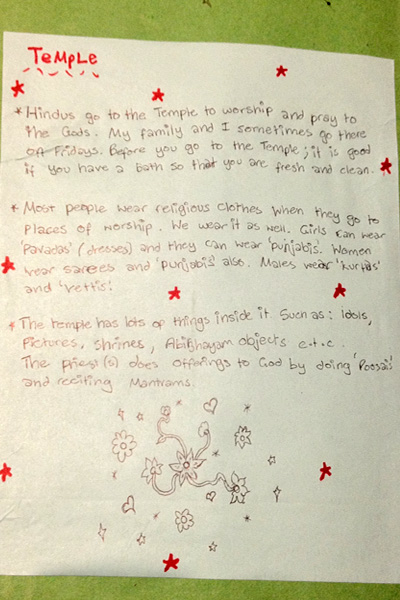 TEMPLE
* Hindus go to the Temple to worship and pray to
the Gods. My family and I sometimes go there
on Fridays. Before you go to the Temple; it is good
if you have a bath so that you are fresh and clean.
* Most people wear religious clothes when they go to
places of worship. We wear it as well. Girls can wear
'Pavadas' (dresses) and they can wear 'punjabis'. Women
wear sarees and 'punjabis' also. Males wear 'kurtas'
and 'vettis'.
* The temple has lots of things inside it. Such as: Idols,
Pictures, shrines, Abibhayam objects e.t.c.
The priest(s) does offerings to God by doing 'Poosais'
and reciting Mantrams.